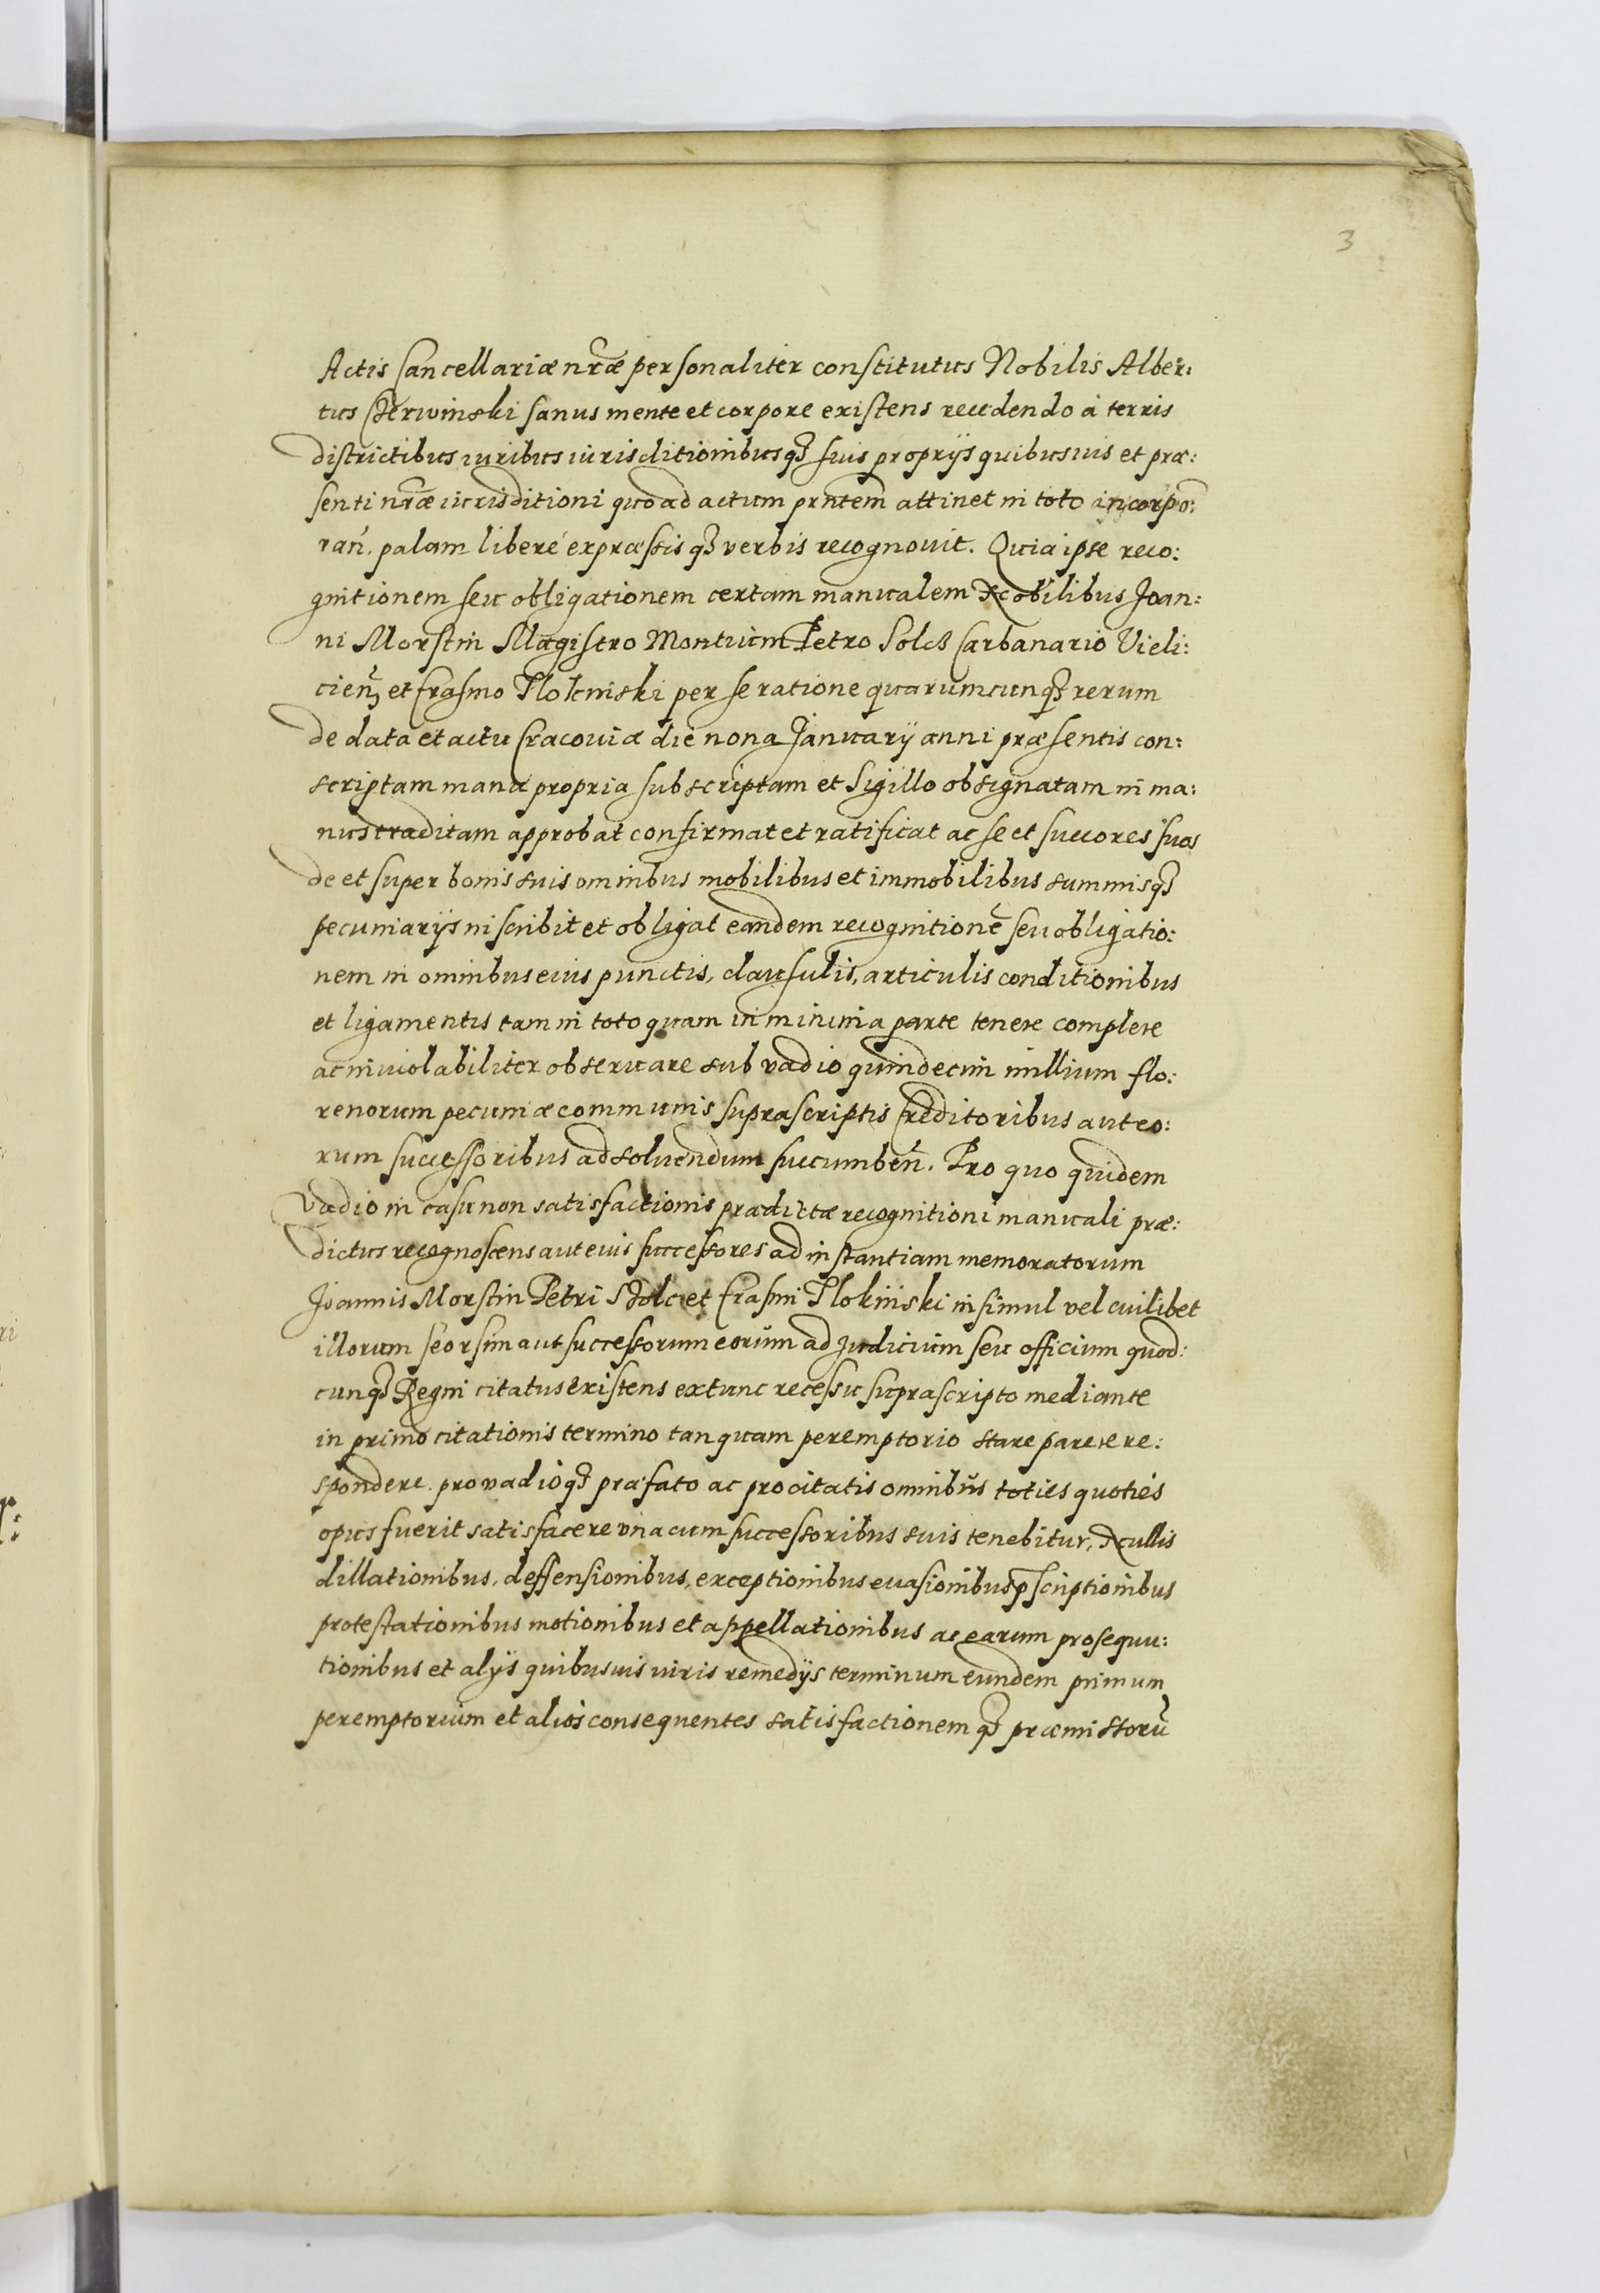 3
Actis Cancellariæ nr̃æ personaliter constitutus Nobilis Alber:
tus Czerwinski sanus mente et corpore existens recedendo à terris
districtibus iuribus iurisditionibusq3 suis proprijs quibusuis et præ:
senti nr̃æ iurisditioni quo ad actum prntem̃ attinet in toto incorpo:
rañ. palam liberé expræssis q3 verbis recognouit. Quia ipse reco:
gnitionem seu obligationem certam manualem Nobilibus Joan:
ni Morstin Magistro Montium Petro Solcz Carbanario Vieli:
cieñ et Erasmo Tlokinski per se ratione quarumcunq3 rerum
de data et actu Cracouiæ die nona Januarij anni præsentis con:
scriptam manu propria subscriptam et Sigillo obsignatam in ma:
nus traditam approbat confirmat et ratificat ac se et succores suos
de et super bonis suis omnibus mobilibus et immobilibus summisq3
pecuniarijs inscribit et obligat eandem recognitionẽ seu obligatio:
nem in omnibus eius punctis, clausulis, articulis conditionibus
et ligamentis tam in toto quam in minima parte tenere complere
ac inuiolabiliter obseruare sub vadio quindecim millium flo:
renorum pecuniæ communis suprascriptis Creditoribus aut eo:
rum successoribus ad soluendum succumbeñ. Pro quo quidem
vadio in casu non satisfactionis prædictæ recognitioni manuali præ:
dictus recognoscens aut eius successores ad instantiam memoratorum
Joannis Morstin Petri Szolc et Erasmi Tlokinski insimul vel cuilibet
illorum seorsim aut successorum eorum ad Judicium seu officium quod:
cunq3 Regni citatus existens extunc recessu suprascripto mediante
in primo citationis termino tanquam peremptorio stare parere re:
spondere. pro vadioq3 præfato ac pro citatis omnibus toties quoties
opus fuerit satisfacere vna cum successoribus suis tenebitur, Nullis
dillationibus, deffensionibus, exceptionibus euasionibus p̱scriptionibus
protestationibus motionibus et appellationibus ac earum prosequu:
tionibus et alijs quibusuis iuris remedijs terminum eundem primum
peremptorium et alios consequentes satisfactionem q3 præmissorũ